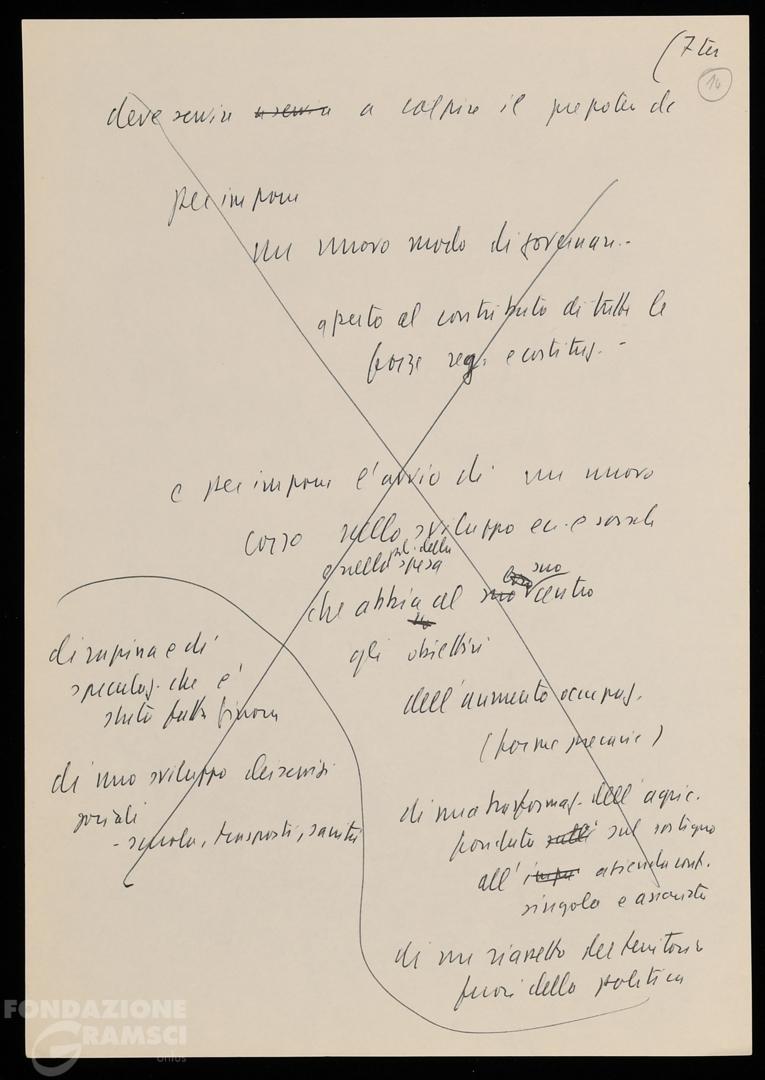 (7 ter
16
deve servire a servire a colpire il prepotere dc
per imporre
un nuovo modo di governare.-
aperto al contributo di tutte le
forze reg. e costituz. -
e per imporre l'avvio di un nuovo
corso nello sviluppo ec. e sociale
e nella pol. della
spesa
che abbia al suo centro
gli obiettivi
dell'aumento occupaz.
(forme precarie)
di una trasformaz. dell'agric.
fondata sul sostegno
all' azienda cont.
singola e associata
di un riassetto del territorio
fuori della politica
di rapina e di
speculaz. che è
stata fatta finora
di uno sviluppo dei servizi
sociali
- scuola, trasporti, sanità
FONDAZIONE
GRAMSCI
onlus